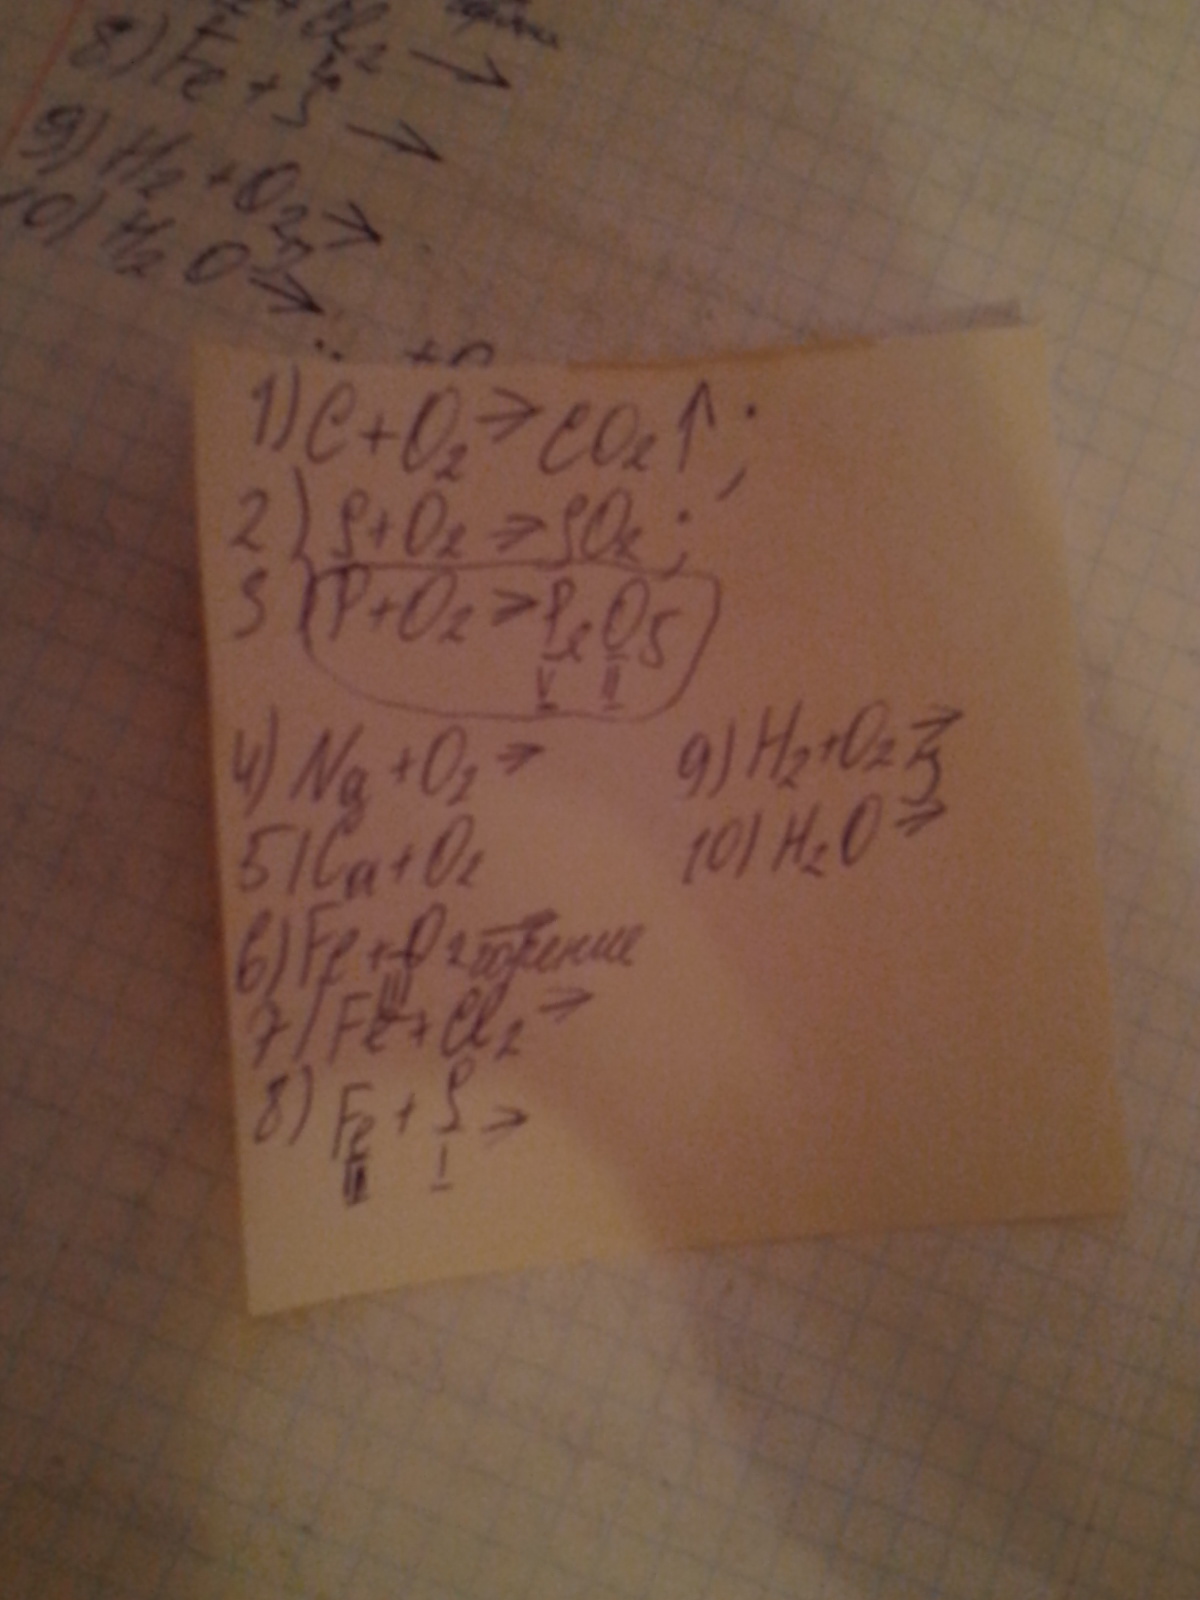 8) Fe + S →
9) H₂ + O₂ →
10) H₂O →
1) C + O₂ → CO₂↑;
2) S + O₂ → SO₂;
3) P + O₂ → P₂O₅
V II
4) Na + O₂ →
5) Ca + O₂
6) Fe + O₂ горение
III
7) Fe + Cl₂ →
8) Fe + S →
III I
9) H₂ + O₂ →
10) H₂O →